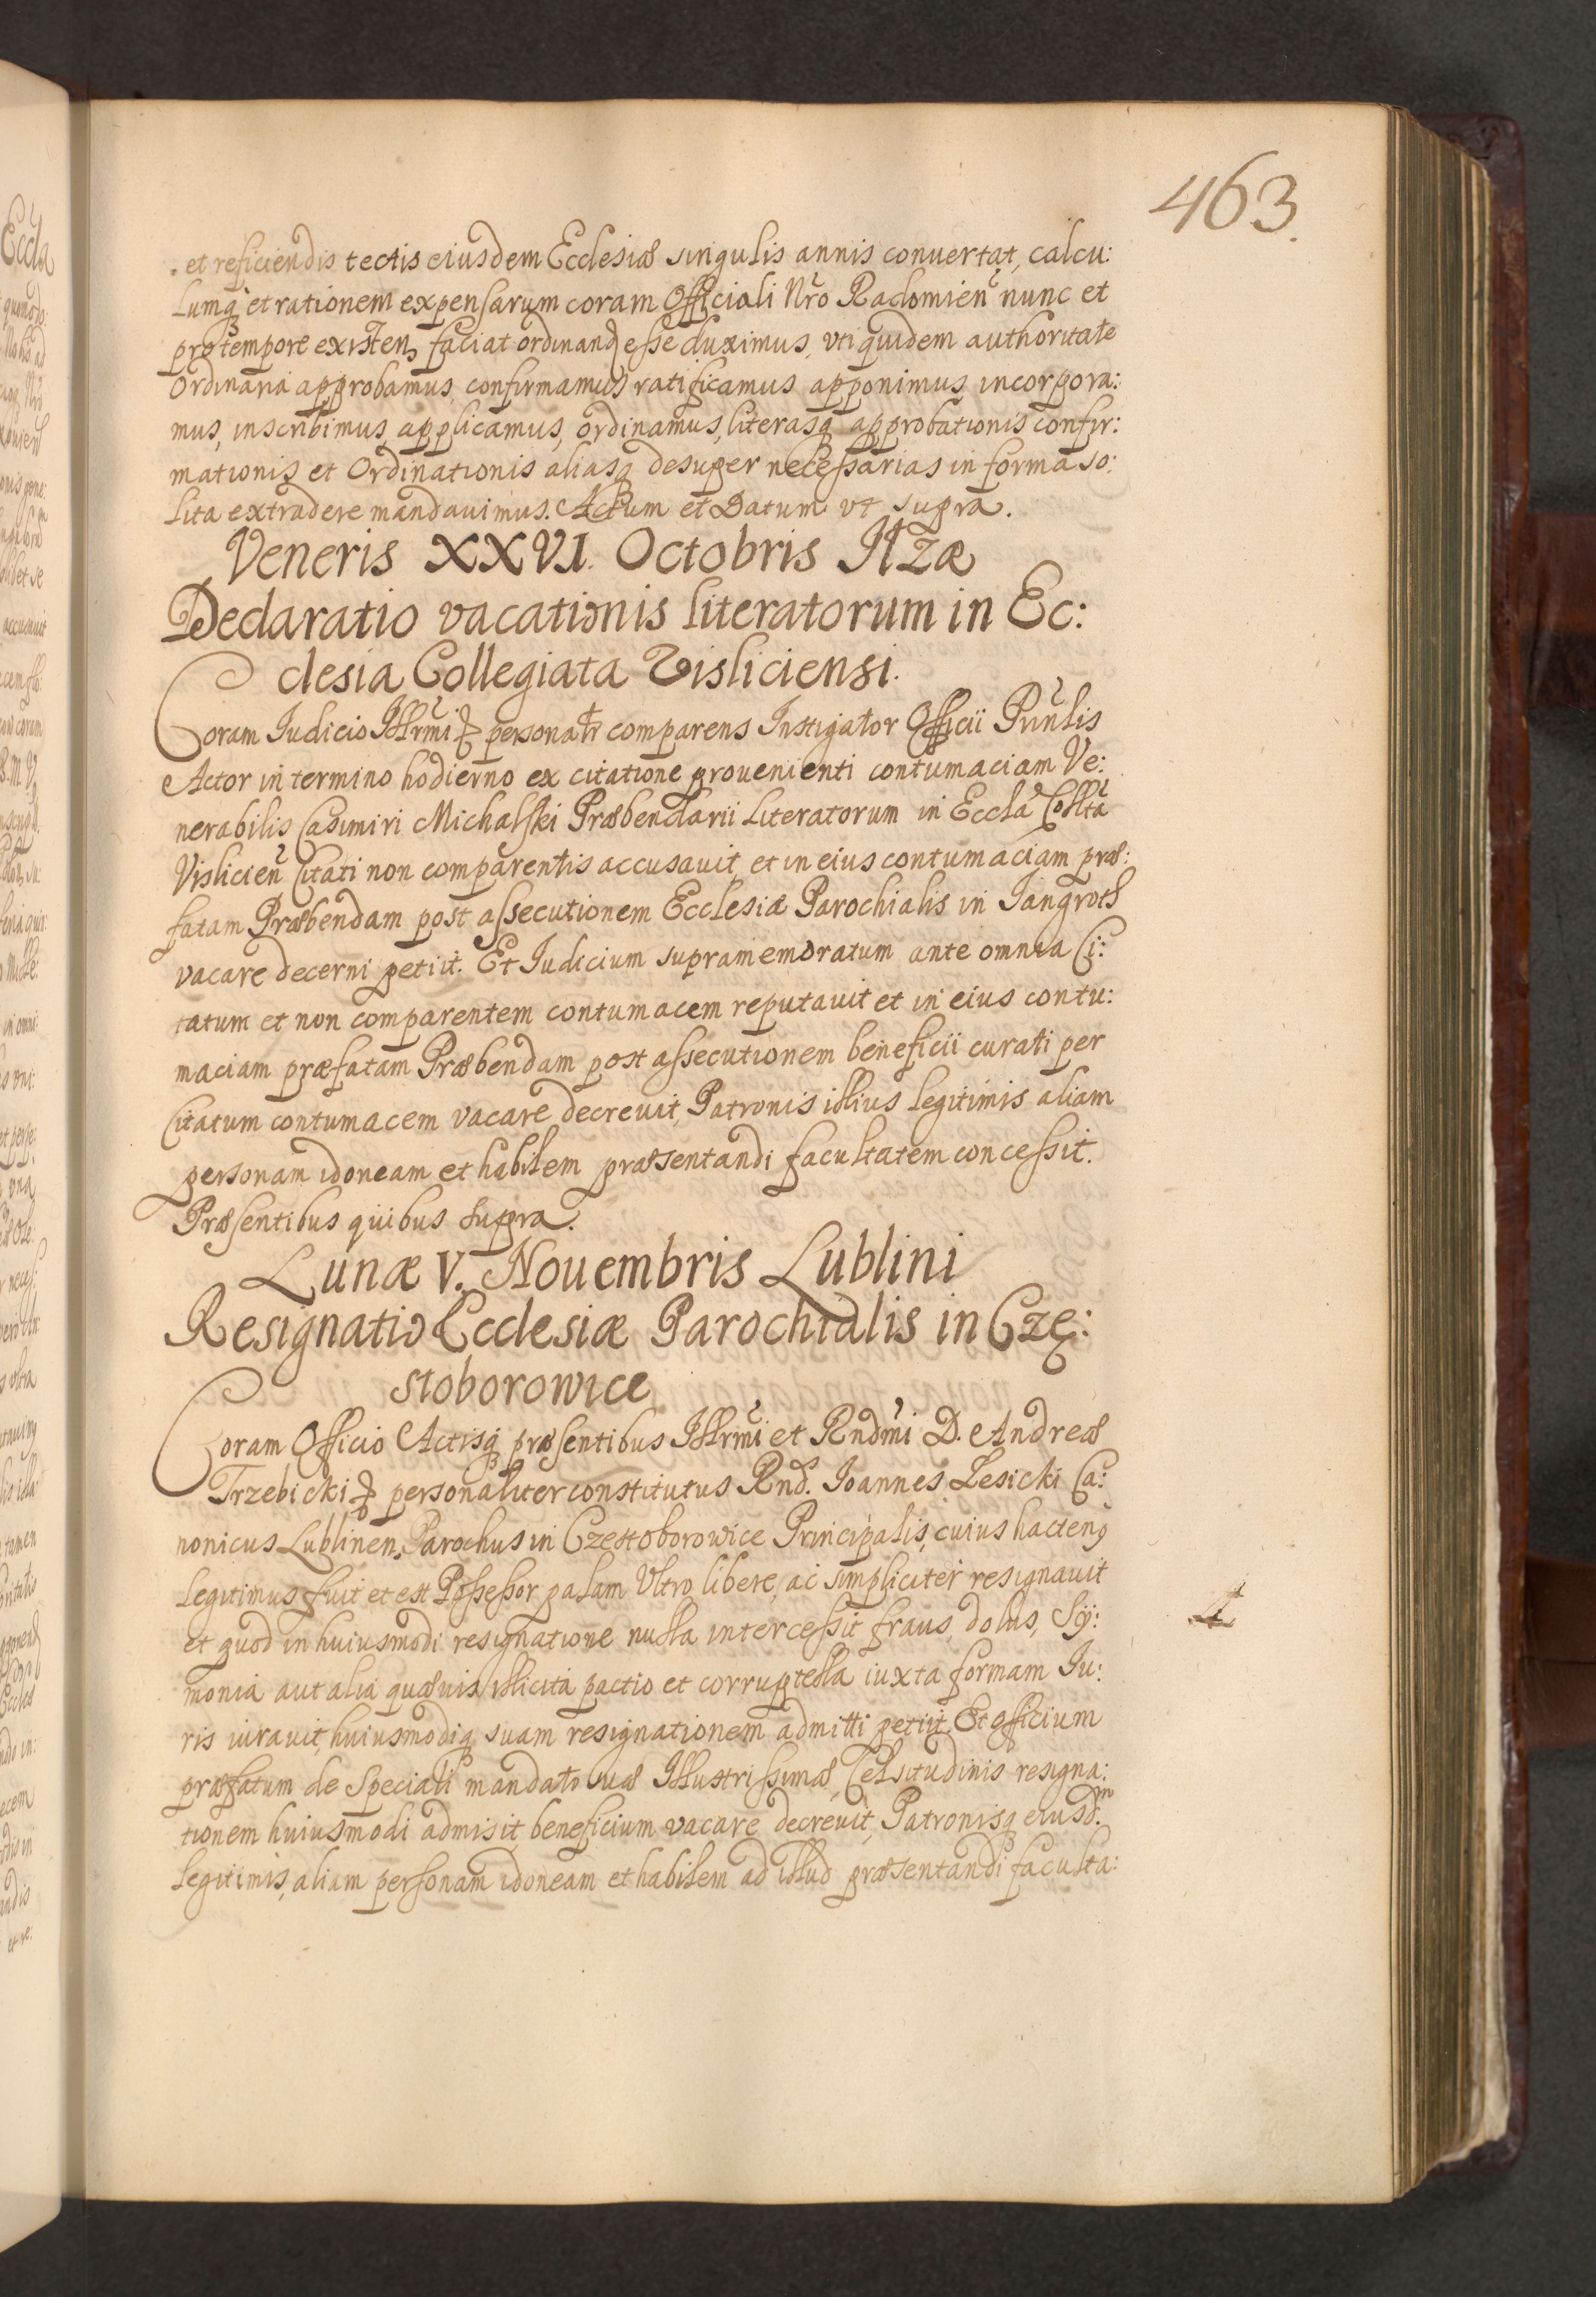 463.
et reficiendis tectis eiusdem Ecclesiæ singulis annis conuertat, calcu:
lumq et rationem expensarum coram Officiali Nro Radomien nunc et
pro tempore existen, faciat ordinand esse duximus, vti quidem authoritate
Ordinaria approbamus, confirmamus ratificamus apponimus, incorpora:
mus, inscribimus, applicamus, ordinamus, literasq approbationis confir:
mationis et Ordinationis aliasq desuper necessarias in forma so:
lita extradere mandauimus. Actum et Datum vt supra.
Veneris XXVI. Octobris Ilzæ
Declaratio vacationis literatorum in Ec:
clesia Collegiata Visliciensi.
Coram Iudicio Illrmi personalr comparens Instigator Officii Prinlis
Actor in termino hodierno ex citatione prouenienti contumaciam Ve:
nerabilis Casimiri Michalski Præbendarii Literatorum in Eccla Collta
Vislicien Citati non comparentis accusauit, et in eius contumaciam præ:
fatam Præbendam post assecutionem Ecclesiæ Parochialis in Jangroth
vacare decerni petiit. Et Iudicium supramemoratum ante omnia Ci:
tatum et non comparentem contumacem reputauit et in eius contu:
maciam præfatam Præbendam post assecutionem beneficii curati per
Citatum contumacem vacare decreuit, Patronis illius legitimis aliam
personam idoneam et habilem præsentandi facultatem concessit.
Præsentibus quibus supra.
Lunæ V. Nouembris Lublini
Resignatio Ecclesiæ Parochialis in Czę:
stoborowice
Coram Officio Actisq præsentibus Illrmi et Rndmi D. Andreæ
Trzebicki personaliter constitutus Rnd. Ioannes Lesicki Ca:
nonicus Lublinen, Parochus in Czestoborowice Principalis, cuius hacteng
legitimus fuit et est Possessor palam Vltro, libere, ac simpliciter resignauit
et quod in huiusmodi resignatione nulla intercessit fraus, dolus, Sy:
monia aut alia quæuis illicita pactio et corruptella iuxta formam Iu:
ris iurauit, huiusmodiq suam resignationem admitti petiit. Et officium
præfatum de Speciali mandato suæ Illustrissimæ Celsitudinis resigna:
tionem huiusmodi admisit, beneficium vacare decreuit, Patronisq eiusd.m
legitimis, aliam personam idoneam et habilem ad illud præsentandi faculta: